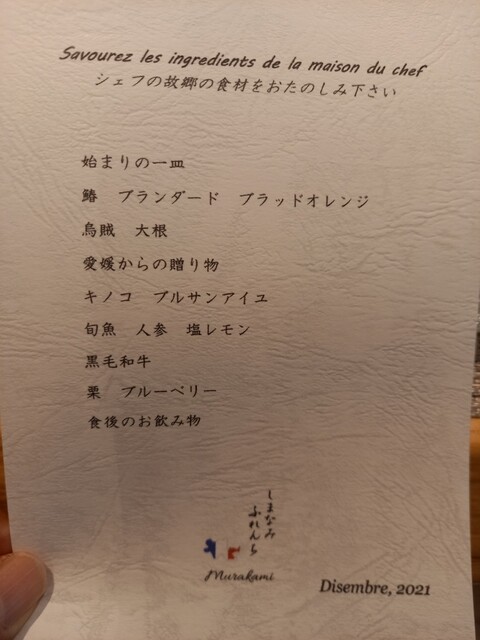 Savourez les ingredients de la maison du chef
シェフの故郷の食材をおたのしみ下さい
始まりの一皿
鰆　ブランダード　ブラッドオレンジ
烏賊　大根
愛媛からの贈り物
キノコ　ブルサンアイユ
旬魚　人参　塩レモン
黒毛和牛
栗　ブルーベリー
食後のお飲み物
しまなみ
ふれんち
Murakami
Disembre, 2021